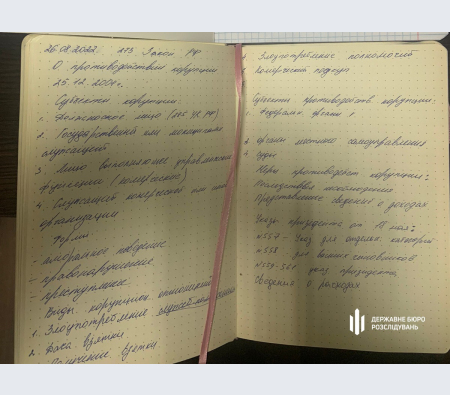 26.08.2022. 273 Закон РФ
О противодействии корупции
25.12.2008г.
Субъекты корупции:
1. Должностное лицо (285 УК РФ)
2. Государственный или муниципальный
служащий
3. Лицо выполняющее управленческие
функции (комерческие)
4. Служащий комерческой или иной
организации
Формы:
- аморальное поведение
- правонарушение
- преступление
Виды корупцион. отношений
1. Злоупотребление
2. Дача взятки
взятки
Злоупотребление полномочий
Комерческий подкуп
Субъекты противодейств корупции:
1. Федералы органы
2 органы местного самоуправления
суды
Меры противодейст корупции:
Последствия
Представление сведений о доходах
Указы президента от мая:
N557 - Указ для отделено категорий
N558 для высших чиновников
N559-560 президента
Сведения о расходах
ДЕРЖАВНЕ БЮРО
РОЗСЛІДУВАНЬ